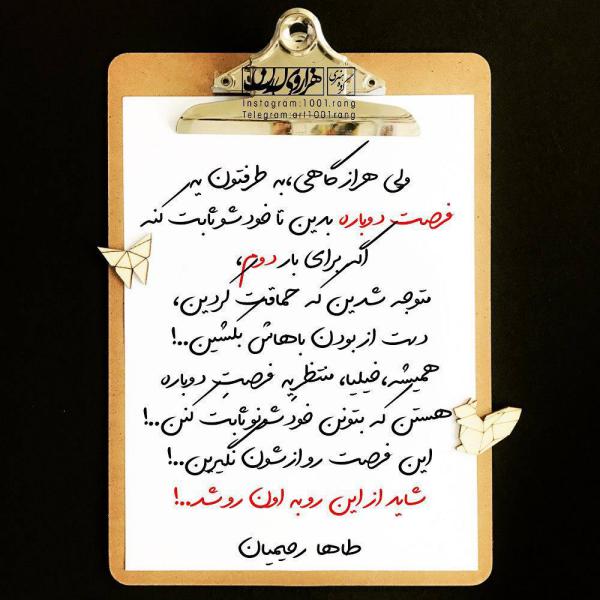 گروه هنری هزار و یک رنگ
Instagram:1001.rang
Telegram:art1001rang
ولی هراز گاهی،به طرفتون یه
فرصت دوباره بدین تا خودشو ثابت کنه
اگر برای بار دوم،
متوجه شدین که حماقت کردین،
دست از بودن باهاش بکشین..!
همیشه،خیلیا، منتظریِه فرصتِ دوباره
هستن که بتونن خودشونو ثابت کنن..!
این فرصت رو ازشون نگیرین..!
شاید از این رو به اون رو شد..!
طاها رحیمیان